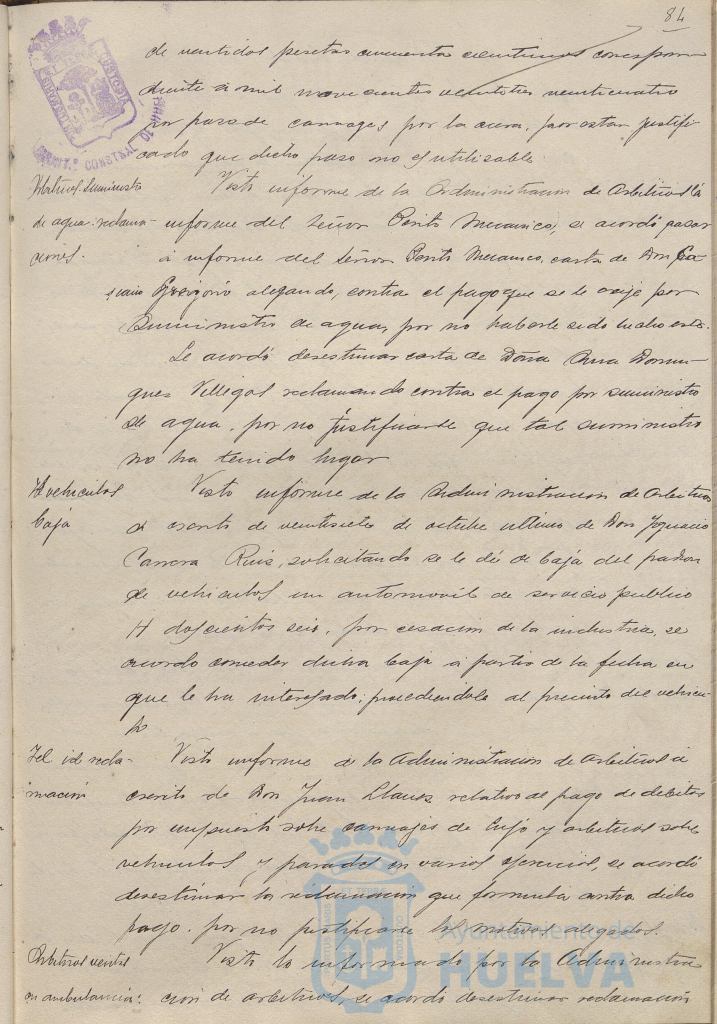 84
de ventidos pesetas cincuenta centimos correspon
diente a mil novecientos ventitres venticuatro
por paso de carruages por la acera, por estar justifi
cado que dicho paso no es utilizable.
Arbitrios. Suministro
de agua: reclama-
ciones.
Visto informe de la Administracion de Arbitrios a
informe del Señor Perito Mecanico, se acordó pasar
a informe del Señor Perito Mecanico, carta de Don Ca
siano Gregorio alegando, contra el pago que se le exije por
suministro de agua, por no haberle sido hecho este.
Se acordó desestimar carta de Doña Ana Domin
guez Villegas reclamando contra el pago por suministro
de agua, por no justificarse que tal suministro
no ha tenido lugar
Id vehiculos
baja
Visto informe de la Administracion de Arbitrios
a escrito de ventisiete de octubre ultimo de Don Ygnacio
Carrera Ruiz, solicitando se le dé de baja del padron
de vehiculos un automovil de servicio publico
H doscientos seis, por cesacion de la industria, se
acordo conceder dicha baja a partir de la fecha en
que le ha interesado, procediendole al precinto del vehicu-
lo
Id id recla-
macion
Visto informe de la Administracion de Arbitrios a
escrito de Don Juan Llanes relativo al pago de debitos
por impuesto sobre carruajes de lujo y arbitrios sobre
vehiculos y paradas en varios ejercicios, se acordó
desestimar la reclamacion que formula contra dicho
pago, por no justificarse los motivos alegados.
Arbitrios ventas
en ambulancia:
Visto lo informado por la Administra
cion de arbitrios, se acordó desestimar reclamación
Ayuntamiento de
HUELVA